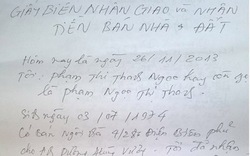 GIẤY BIÊN NHẬN GIAO và NHẬN
TIỀN BÁN NHÀ & ĐẤT
Hôm nay là ngày 26/11/2013
Tôi. phạm thị Ngọc hay còn gọi
là phạm Ngọc Thị
Sin ngày 03/07/1974
Có bán ngôi nhà Điện Biên phủ
cho Dương Tôi đã nhận